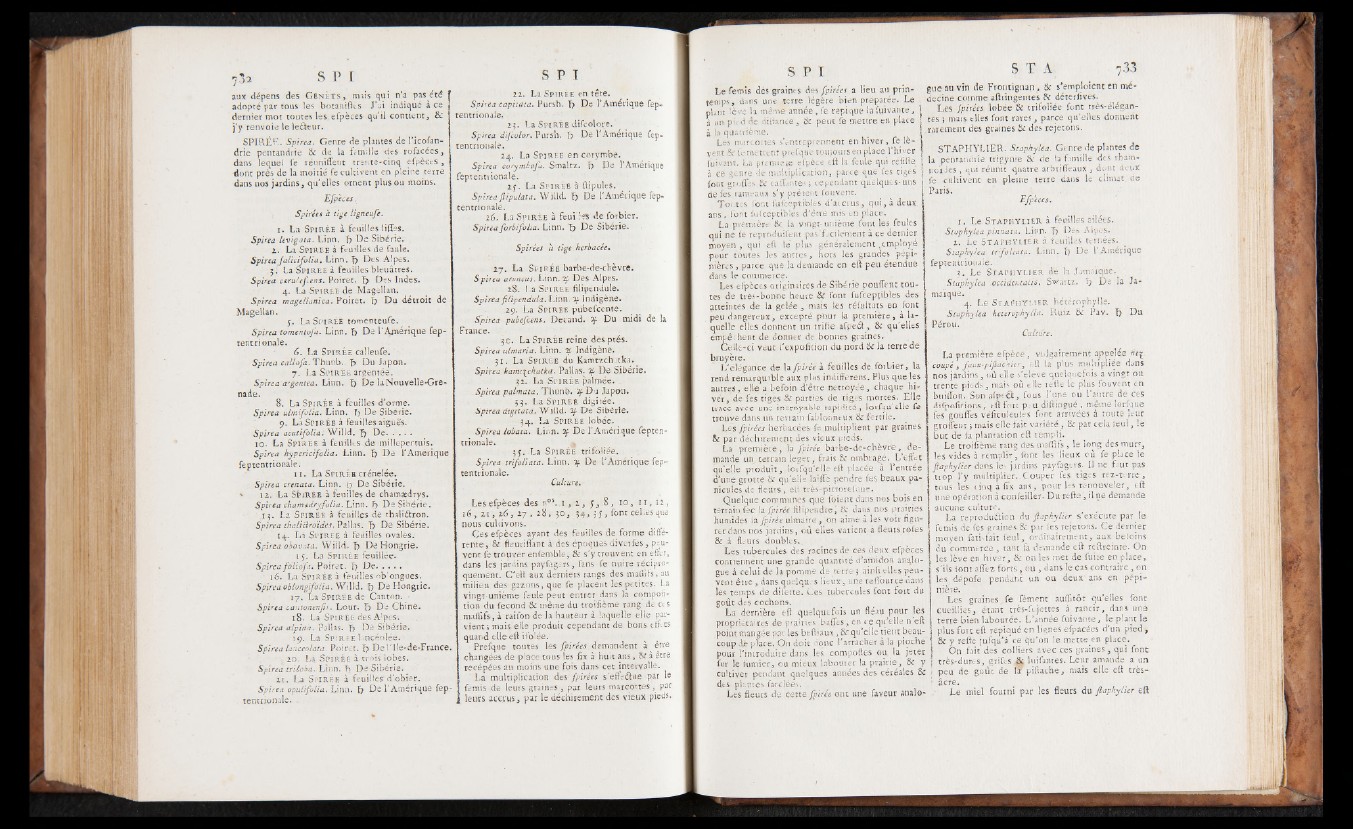 732 SPI
aux dépens des GENÊTS, mais qui n'a pas été
adopté par tous les botanistes. J'ai indiqué à ce
dernier mot toutes les espèces qu'il contient, &
j'y renvoie le lecteur.
SPIRÉE. Spirea. Genre de plantes de l'icosan-
drie pentandrie & de la famille des rosacées,
dans lequel se réunissent trente-cinq espèces,
dont près de la moitié se cultivent en pleine terre
dans nos jardins, qu'elles ornent plus ou moins.
Espèces.
Spirées à tige ligneuse.
1. La SPIRÉE à feuilles lisses.
Spirea levigata. Linn. ♄ De Sibérie.
2. La SPIRÉE à feuilles de saule.
Spirea salicifolia. Linn. ♄ Des Alpes.
3. La SPIRÉE à feuilles bleuâtres.
Spirea cerulescens. Poiret. ♄ Des Indes.
4. La SPIRÉE de Magellan.
Spirea magellanica. Poiret. ♄ Du détroit de
Magellan.
5. La SPIRÉE tomenteuse.
Spirea tomentosa. Linn. ♄ De l'Amérique sep-
tentrionale.
6. La SPIRÉE calleuse.
Spirea callosa. Thunb. ♄ Du Japon.
7. La SPIRÉE argentée.
Spirea argentea. Linn. ♄ De la Nouvelle-Gre-
nade.
8. La SPIRÉE à feuilles d'orme.
Spirea ulmifolia. Linn. ♄ De Sibérie.
9. La SPIRÉE à feuilles aiguës.
Spirea acutifolia. Willd. ♄ De. . . . .
10. La SPIRÉE à feuilles de millepertuis.
Spirea hypericifolia. Linn. ♄ De l'Amérique
septentrionale.
11. La SPIRÉE crénelée.
Spirea crenata. Linn. ♄ De Sibérie.
12. La SPIRÉE à feuilles de chamædrys.
Spirea chamædryfolia. Linn. ♄ De Sibérie.
13. La SPIRÉE à feuilles de thalictron.
Spirea thalictroides. Pallas. ♄ De Sibérie.
14. La SPIRÉE à feuilles ovales.
Spirea obovata. Willd. ♄ De Hongrie.
15. La SPIRÉE feuillée.
Spirea foliosa. Poiret. ♄ De. . . . .
16. La SPIRÉE à feuilles oblongues.
Spirea oblongifolia. Willd. ♄ De Hongrie.
17. La SPIRÉE de Canton.
Spirea cantonensis. Lour. ♄ De Chine.
18. La SPIRÉE des Alpes.
Spirea alpina. Pallas. ♄ De Sibérie.
19. La SPIRÉE lancéolée.
Spirea lanceolata. Poiret. ♄ De l'Ile-de-France.
20. La SPIRÉE à trois lobes.
Spirea triloba. Linn. ♄ De Sibérie.
21. La SPIRÉE à feuilles d'obier.
Spirea opulifolia. Linn. ♄ De l'Amérique sep-
tentrionale.
SPI
22. La SPIRÉE en tête.
Spirea capitata. Pursh. ♄ De l'Amérique sep-
tentrionale.
23. La SPIRÉE discolore.
Spirea discolor. Pursh. ♄ De l'Amérique sep-
tentrionale.
24. La SPIRÉE en corymbe.
Spirea corymbosa. Smaltz. ♄ De l'Amérique
septentrionale.
25. La SPIRÉE à stipules.
Spirea stipulata. Willd. ♄ De l'Amérique sep-
tentrionale.
26. La SPIRÉE à feuilles de sorbier.
Spirea sorbifolia. Linn. ♄ De Sibérie.
Spirées à tige herbacée.
27. La SPIRÉE barbe-de-chèvre.
Spirea aruncus. Linn. ♃ Des Alpes.
28. La SPIRÉE filipendule.
Spirea filipendula. Linn. ♃ Indigène.
29. La SPIRÉE pubescente.
Spirea pubescens. Decand. ♃ Du midi de la
France.
30. La SPIRÉE reine des prés.
Spirea ulmaria. Linn. ♃ Indigène.
31. La SPIRÉE du Kamtzchatka.
Spirea kamtzchatica. Pallas. ♃ De Sibérie.
32. La SPIRÉE palmée.
Spirea palmata. Thunb. ♃ Du Japon.
33. La SPIRÉE digitée.
Spirea digitata. Willd. ♃ De Sibérie.
34. La SPIRÉE lobée.
Spirea lobata. Linn. ♃ De l'Amérique septen-
trionale.
35. La SPIRÉE trifoliée.
Spirea trifoliata. Linn. ♃ De l'Amérique sep-
tentrionale.
Culture.
Les espèces des nos. 1, 2, 5, 8, 10, 11, 12,
16, 21, 26, 27, 28, 30, 34, 35, sont celles que
nous cultivons.
Ces espèces ayant des feuilles de forme diffé-
rente, & fleurissant à des époques diverses, peu-
vent se trouver ensemble, & s'y trouvent en effet,
dans les jardins paysagers, sans se nuire récipro-
quement. C'est aux derniers rangs des massifs, au
milieu des gazons, que se placent les petites. La
vingt-unième seule peut entrer dans la composi-
tion du second & même du troisième rang de ces
massifs, à raison de la hauteur à laquelle elle par-
vient; mais elle produit cependant de bons effets
quand elle est isolée.
Presque toutes les spirées demandent à être
changées de place tous les six à huit ans, & à être
recépées au moins une fois dans cet intervalle.
La multiplication des spirées s'effectue par le
semis de leurs graines, par leurs marcottes, par
leurs accrus, par le déchirement des vieux pieds.
SPI
Le semis des graines des spirées a lieu au prin-
temps, dans une terre légère bien préparée. Le
plant levé la même année, se repique la suivante,
à un pied de distance, & peut se mettre en place
à la quatrième.
Les marcottes s'entreprennent en hiver, se lè-
vent & se mettent presque toujours en place l'hiver
suivant. La première espèce est la seule qui résiste
à ce genre de multiplication, parce que ses tiges
sont grosses & cassantes; cependant quelques-uns
de ses rameaux s'y prêtent souvent.
Toutes sont susceptibles d'accrus, qui, à deux
ans, sont susceptibles d'être mis en place.
La première & la vingt-unième sont les seules
qui ne se reproduisent pas facilement à ce dernier
moyen, qui est le plus généralement employé
pour toutes les autres, hors les grandes pépi-
nières, parce que la demande en est peu étendue
dans le commerce.
Les espèces originaires de Sibérie poussent tou-
tes de très-bonne heure & sont susceptibles des
atteintes de la gelée, mais les résultats en sont
peu dangereux, excepté pour la première, à la-
quelle elles donnent un triste aspect, & qu'elles
empêchent de donner de bonnes graines.
Celle-ci veut l'exposition du nord & la terre de
bruyère.
L'élégance de la spirée à feuilles de sorbier, la
rend remarquable aux plus indifférens. Plus que les
autres, elle a besoin d'être nettoyée, chaque hi-
ver, de ses tiges & parties de tiges mortes. Elle
trace avec une incroyable rapidité, lorsqu'elle se
trouve dans un terrain sablonneux & fertile.
Les spirées herbacées se multiplient par graines
& par déchirement des vieux pieds.
La première, la spirée barbe-de-chèvre, de-
mande un terrain léger, frais & ombragé. L'effet
qu'elle produit, lorsqu'elle est placée à l'entrée
d'une grotte & qu'elle laisse pendre ses beaux pa-
nicules de fleurs, est très-pittoresque.
Quelque communes que soient dans nos bois en
terrain sec la spirée filipendule, & dans nos prairies
humides la spirée ulmaire, on aime à les voir figu-
rer dans nos jardins, où elles varient à fleurs roses
& à fleurs doubles.
Les tubercules des racines de ces deux espèces
contiennent une grande quantité d'amidon analo-
gue à celui de la pomme de terre; ainsi elles peu-
vent être, dans quelques lieux, une ressource dans
les temps de disette. Ces tubercules sont fort du
goût des cochons.
La dernière est quelquefois un fléau pour les
propriétaires de prairies basses, en ce qu'elle n'est
point mangée par les bestiaux, & qu'elle tient beau-
coup de place. On doit donc l'arracher à la pioche
pour l'introduire dans les composts ou la jeter
sur le fumier, ou mieux labourer la prairie, & y
cultiver pendant quelques années des céréales &
des plantes sarclées.
Les fleurs de cette spirée ont une saveur analo-
STA 733
gue au vin de Frontignan, & s'emploient en mé-
decine comme astringentes & détersives.
Les spirées lobée & trifoliée sont très-élégan-
tes; mais elles sont rares, parce qu'elles donnent
rarement des graines & des rejetons.
STAPHYLIER. Staphylea. Genre de plantes de
la pentandrie trigynie & de la famille des rham-
noïdes, qui réunit quatre arbrisseaux, dont deux
se cultivent en pleine terre dans le climat de
Paris.
Espèces.
1. Le STAPHYLIER à feuilles ailées.
Staphylea pinnata. Linn. ♄ Des Alpes.
2. Le STAPHYLIER à feuilles ternées.
Staphylea trifoliata. Linn. ♄ De l'Amérique
septentrionale.
3. Le STAPHYLIER de la Jamaïque.
Staphylea occidentalis. Swartz. ♄ De la Ja-
maïque.
4. Le STAPHYLIER hétérophylle.
Staphylea heterophylla. Ruiz & Pav. ♄ Du
Pérou.
Culture.
La première espèce, vulgairement appelée nez
coupé, faux-pistachier, est la plus multipliée dans
nos jardins, où elle s'élève quelquefois à vingt ou
trente pieds, mais où elle reste le plus souvent en
buisson. Son aspect, sous l'une ou l'autre de ces
dispositions, est fort peu distingué, même lorsque
ses gousses vésiculeuses sont arrivées à toute leur
grosseur; mais elle fait variété, & par cela seul, le
but de la plantation est rempli.
Le troisième rang des massifs, le long des murs,
les vides à remplir, sont les lieux où se place le
staphylier dans les jardins paysagers. Il ne faut pas
trop l'y multiplier. Couper ses tiges rez-terre,
tous les cinq à six ans, pour les renouveler, est
une opération à conseiller. Du reste, il ne demande
aucune culture.
La reproduction du staphylier s'exécute par le
semis de ses graines & par ses rejetons. Ce dernier
moyen satisfait seul, ordinairement, aux besoins
du commerce, tant la demande est restreinte. On
les lève en hiver, & on les met de suite en place,
s'ils sont assez forts, ou, dans le cas contraire, on
les dépose pendant un ou deux ans en pépi-
nière.
Les graines se sèment aussitôt qu'elles sont
cueillies, étant très-sujettes à rancir, dans une
terre bien labourée. L'année suivante, le plant le
plus fort est repiqué en lignes espacées d'un pied,
& y reste jusqu'à ce qu'on le mette en place.
On fait des colliers avec ces graines, qui sont
très-dures, grises & luisantes. Leur amande a un
peu de goût de la pistache, mais elle est très-
âcre.
Le miel fourni par les fleurs du staphylier est